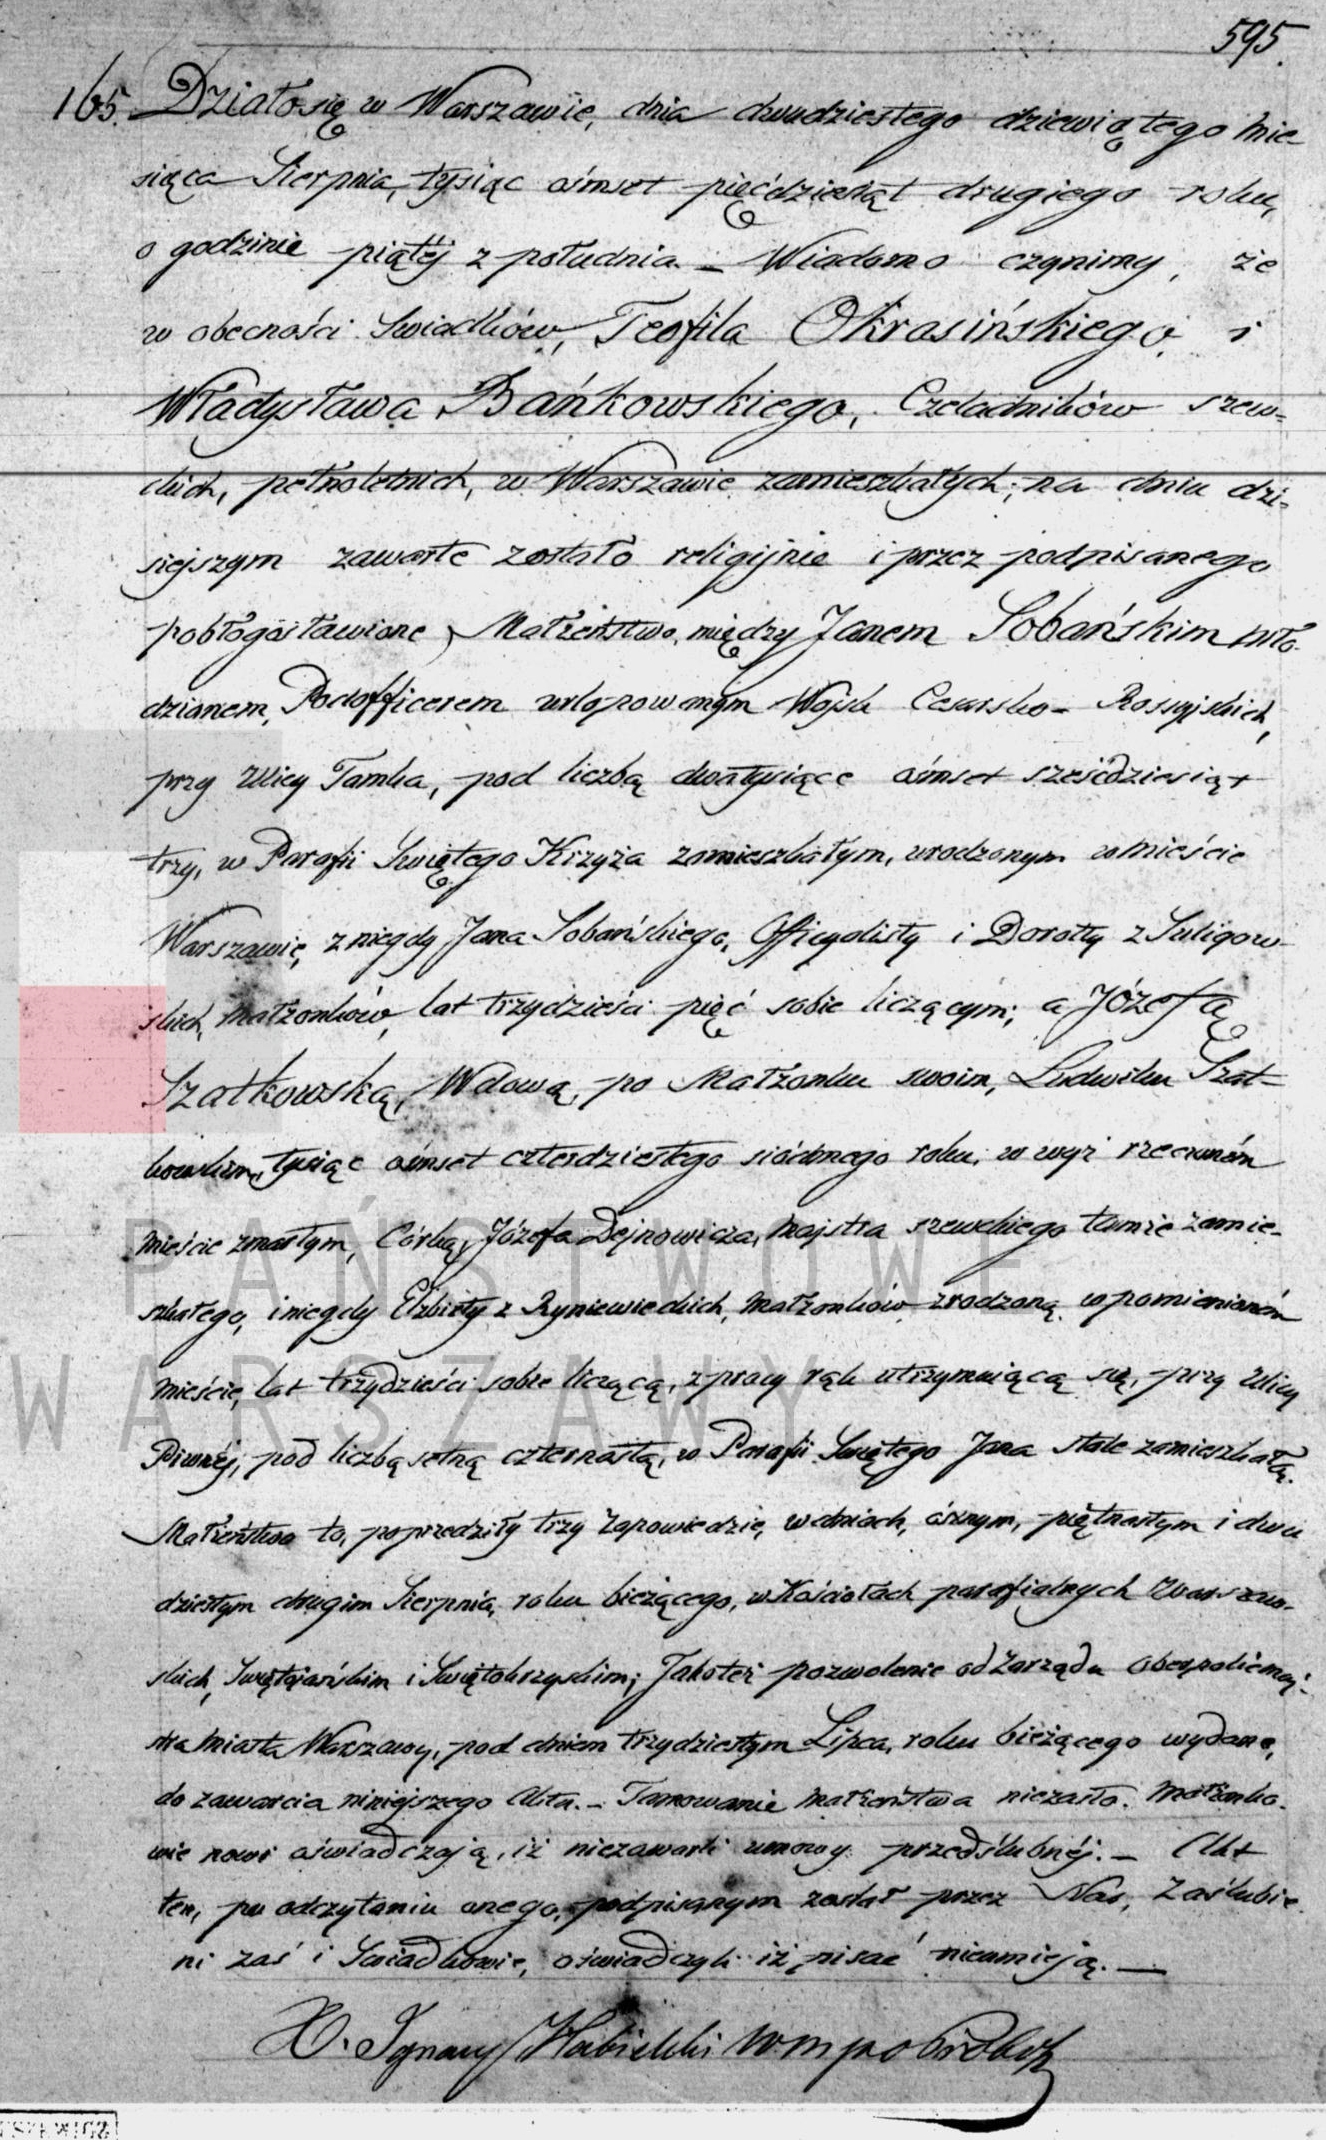 595.
165. Działo się w Warszawie, dnia dwudziestego dziewiątego Mie-
siąca Sierpnia, tysiąc ośmset pięćdziesiąt drugiego roku,
o godzinie piątéj z południa. – Wiadomo czynimy, że
w obecności Swiadków, Teofila Okrasińskiego i
Władysława Bańkowskiego, Czeladników szew-
ckich, pełnoletnich, w Warszawie zamieszkałych; na dniu dzi-
siejszym zawarte zostało religijnie i przez podpisanego
pobłogosławione Małżeństwo, między Janem Sobańskim Mło-
dzianem, Podofficerem urlopowanym Wojsk Cesarsko-Rossyjskich,
przy Ulicy Tamka, pod liczbą dwatysiące ośmset sześćdziesiąt
trzy, w Parafii Swiętego Krzyża zamieszkałym, urodzonym w Mieście
Warszawie, z niegdy Jana Sobańskiego, Officyalisty i Doroty z Suligow-
skich, Małżonków, lat trzydzieści pięć sobie liczącym; a Józefą
Szatkowską, Wdową, po Małżonku swoim, Ludwiku Szat-
kowskim, tysiąc ośmset czterdziestego siódmego roku, w wyż rzeczoném
Mieście zmarłym, Córką, Józefa Dejnowicza, Majstra szewckiego tamże zamie-
szkałego, i niegdy Elżbiety z Ryniewieckich, Małżonków, zrodzoną w pomienioném
Mieście, lat trzydzieści sobie liczącą, z pracy rąk utrzymuiącą się, przy Ulicy
Piwnéj, pod liczbą setną czternastą, w Parafii Swiętego Jana stale zamieszkałą.
Małżeństwo to, poprzedziły trzy Zapowiedzie, w dniach, ósmym, piętnastym i dwu
dziestym drugim Sierpnia, roku bieżącego, w Kościołach parafialnych Warszaw-
skich, Swiętojańskim i Swiętokrzyskim; Jakoteż pozwolenie od Zarządu Oberpolicmaj-
stra Miasta Warszawy, pod dniem trzydziestym Lipca, roku bieżącego wydane,
do zawarcia niniejszego Aktu. – Tamowanie Małżeństwa niezaszło. Małżonko-
wie nowi oświadczają, iż niezawarli umowy przedślubnéj. – Akt
ten, po odczytaniu onego, podpisanym został przez Nas, Zaślubie
ni zaś i Swiadkowie, oświadczyli iż pisać nieumieją. –
X. Ignacy
PAŃSTWOWE
WARSZAWY